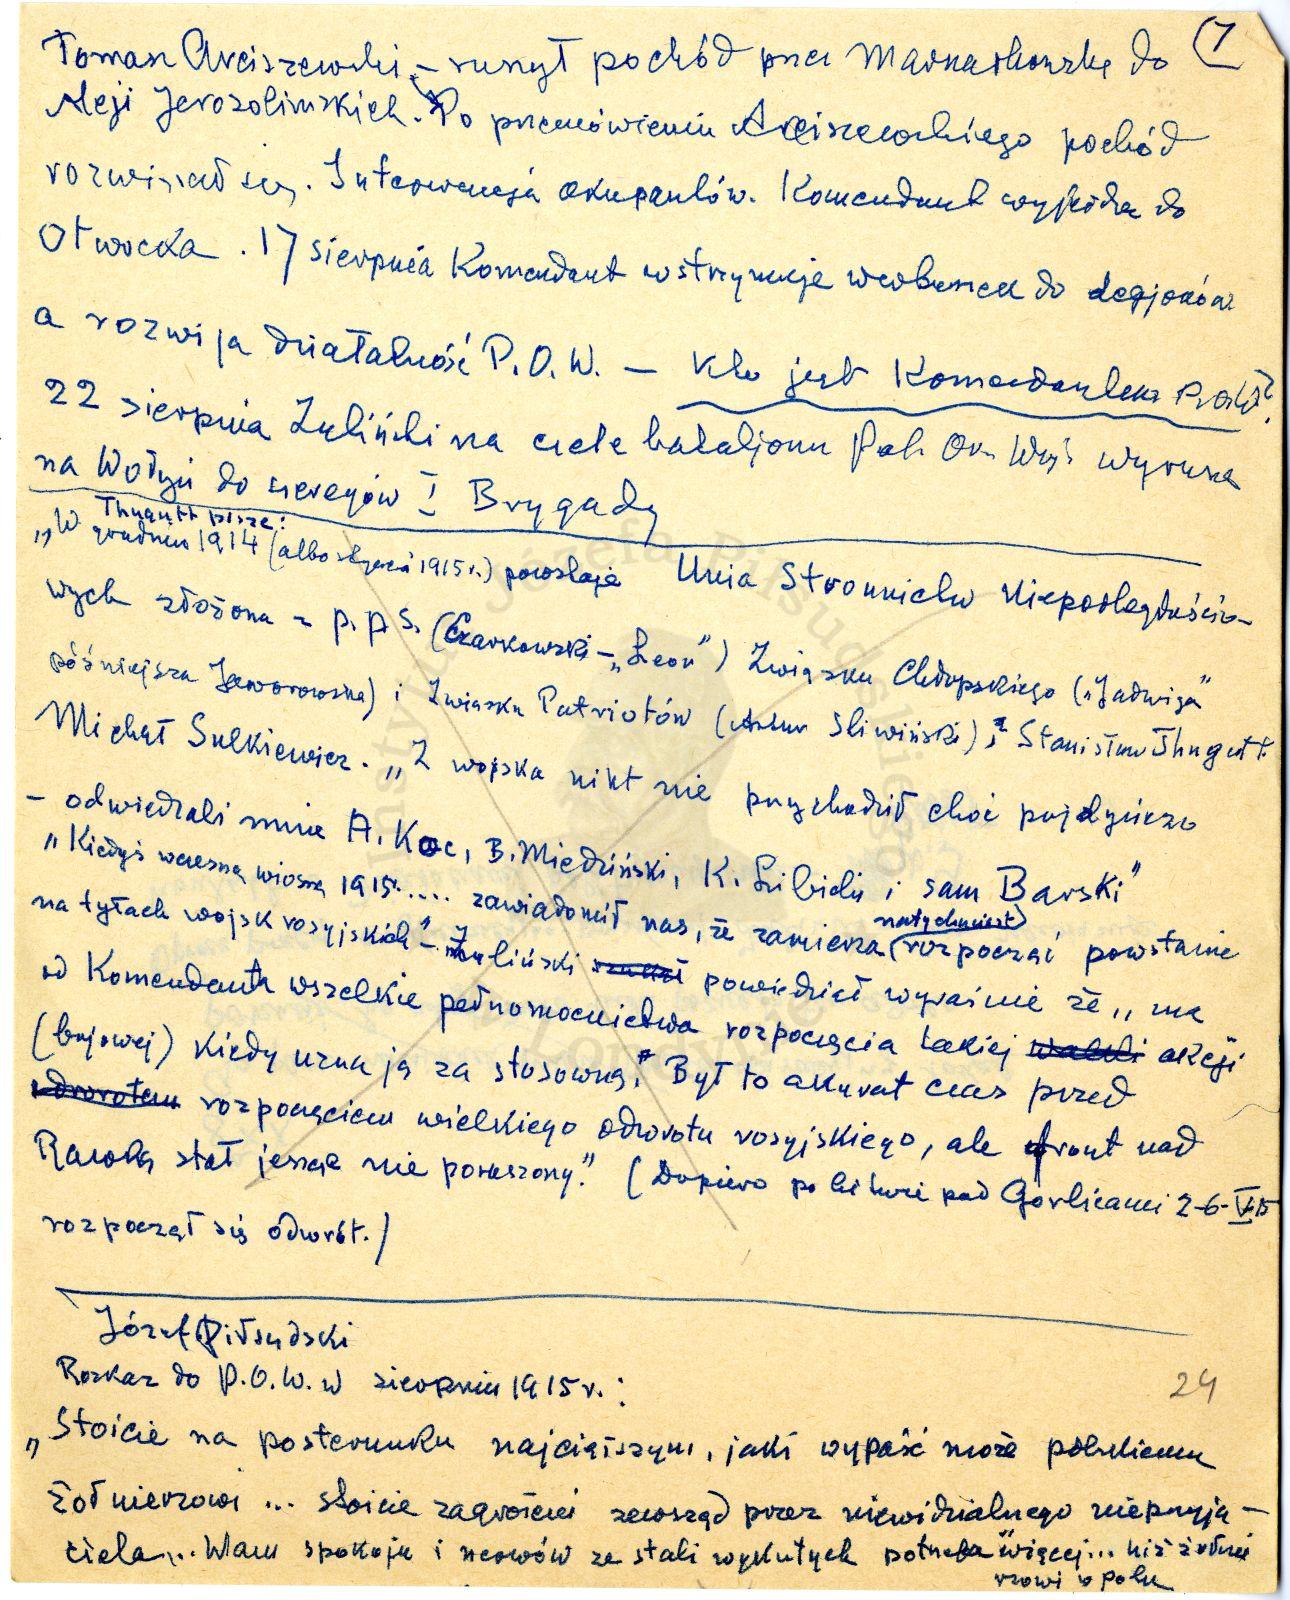 (7
Tomasz Arciszewski – ruszył pochód przez Marszałkowską do
Aleji Jerozolimskich. Po przemówieniu Arciszewskiego pochód
rozwiązał się. Interwencja okupantów. Komendant wyjeżdża do
Otwocka. 17 sierpnia Komendant wstrzymuje werbunek do Legjonów
a rozwija działalność P.O.W. — Kto jest Komendantem
22 sierpnia Żuliński na czele bataljonu Pol. Or. Wojs wyrusza
na Wołyń do szeregów I Brygady
Thugutt pisze:
„W grudniu 1914 (albo styczeń 1915 r.) powstaje Unia Stronnictw Niepodległościo-
wych złożona z P.P.S. (Czarkowski – „Leon") Związku Chłopskiego („Jadwiga"
późniejsza Jaworowska) i Związku Patriotów (Artur Śliwiński), Stanisław Thugutt.
Michał Sulkiewicz. „Z wojska nikt nie przychodził choć pojedyńczo
– odwiedzali mnie A. Koc, B. Miedziński, K. Libicki i sam Barski"
„Kiedyś wczesną wiosną 1915r.... zawiadomił nas, że zamierza (natychmiast) rozpocząć powstanie
na tyłach wojsk rosyjskich" – Żuliński powiedział wyraźnie że „ma
od Komendanta wszelkie pełnomocnictwa rozpoczęcia takiej walki akcji
(bojowej) kiedy uzna ją za stosowną." Był to akurat czas przed
odwrotem rozpoczęciem wielkiego odwrotu rosyjskiego, ale front nad
Rawką stał jeszcze nie poruszony." (Dopiero po bitwie pod Gorlicami 2-6-V-15
rozpoczął się odwrót.)
Józef Piłsudski
Rozkaz do P.O.W. w sierpniu 1915 r.:
24
„Stoicie na posterunku najcięższym, jaki wypaść może polskiemu
żołnierzowi ... stoicie zagrożeni zewsząd przez niewidzialnego nieprzyja–
ciela... Wam spokoju i nerwów ze stali wykutych potrzeba więcej... niż żołnie
rzowi w polu
Instytut Józefa Piłsudskiego
w Londynie